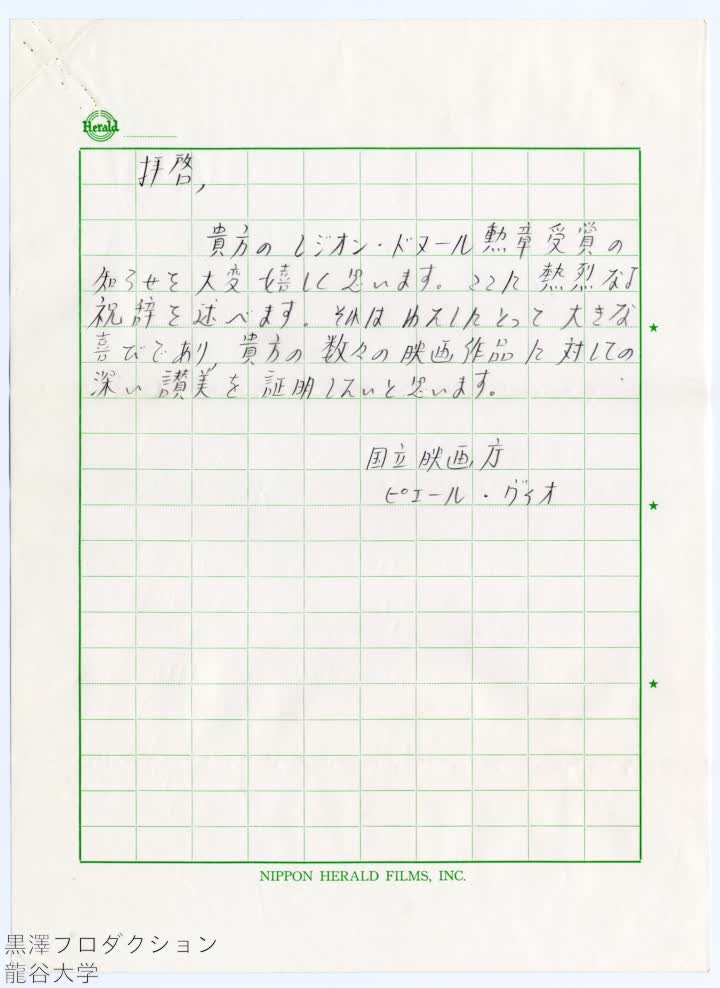 Herald
拝啓,
貴方のレジオン・ドヌール勲章受賞の
知らせを大変嬉しく思います。ここに熱烈な
祝辞を述べます。それはわたしにとって大きな
喜びであり、貴方の数々の映画作品に対しての
深い讃美を証明したいと思います。
国立映画庁
ピエール・ヴィオ
★
★
★
NIPPON HERALD FILMS, INC.
黒澤プロダクション
龍谷大学